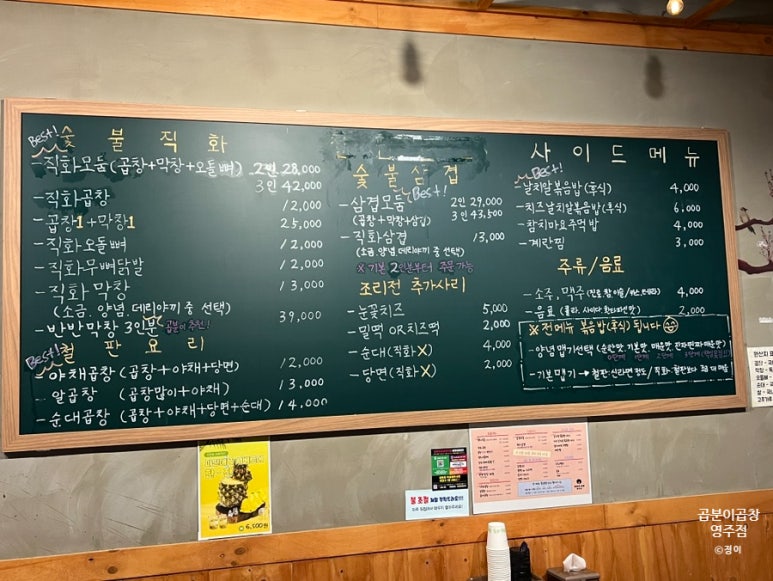 Best!
숯 불 직 화
- 직화모둠 (곱창+막창+오돌뼈) 2인 28,000
3인 42,000
- 직화곱창 12,000
- 곱창1 + 막창1 25,000
- 직화오돌뼈 12,000
- 직화무뼈닭발 12,000
- 직화 막창 13,000
(소금, 양념, 데리야끼 중 선택)
- 반반막창 3인분 곱분이 추천! 39,000
Best!
철 판 요 리
- 야채곱창 (곱창+야채+당면) 12,000
- 알곱창 (곱창많이+야채) 13,000
- 순대곱창 (곱창+야채+당면+순대) 14,000
숯불삼겹
Best!
- 삼겹모둠 2인 29,000
(곱창+막창+삼겹) 3인 43,500
- 직화삼겹 13,000
(소금, 양념, 데리야끼 중 선택)
※ 기본 2인분부터 주문 가능
조리전 추가사리
- 눈꽃치즈 5,000
- 밀떡 OR 치즈떡 2,000
- 순대(직화X) 4,000
- 당면(직화X) 2,000
사 이 드 메 뉴
Best!
- 날치알볶음밥(후식) 4,000
- 치즈날치알볶음밥(후식) 6,000
- 참치마요주먹밥 4,000
- 계란찜 3,000
주류/음료
- 소주, 맥주 4,000
- 음료 (콜라, 사이다, 환타파인맛) 2,000
※ 전메뉴 볶음밥(후식) 됩니다
- 양념맵기선택 (순한맛, 기본맛, 매운맛, 진짜진짜매운맛)
- 기본맵기 → 철판: 신라면정도 / 직화: 철판보다 조금 더 매움
6,500원
곱분이곱창
영주점
©경이